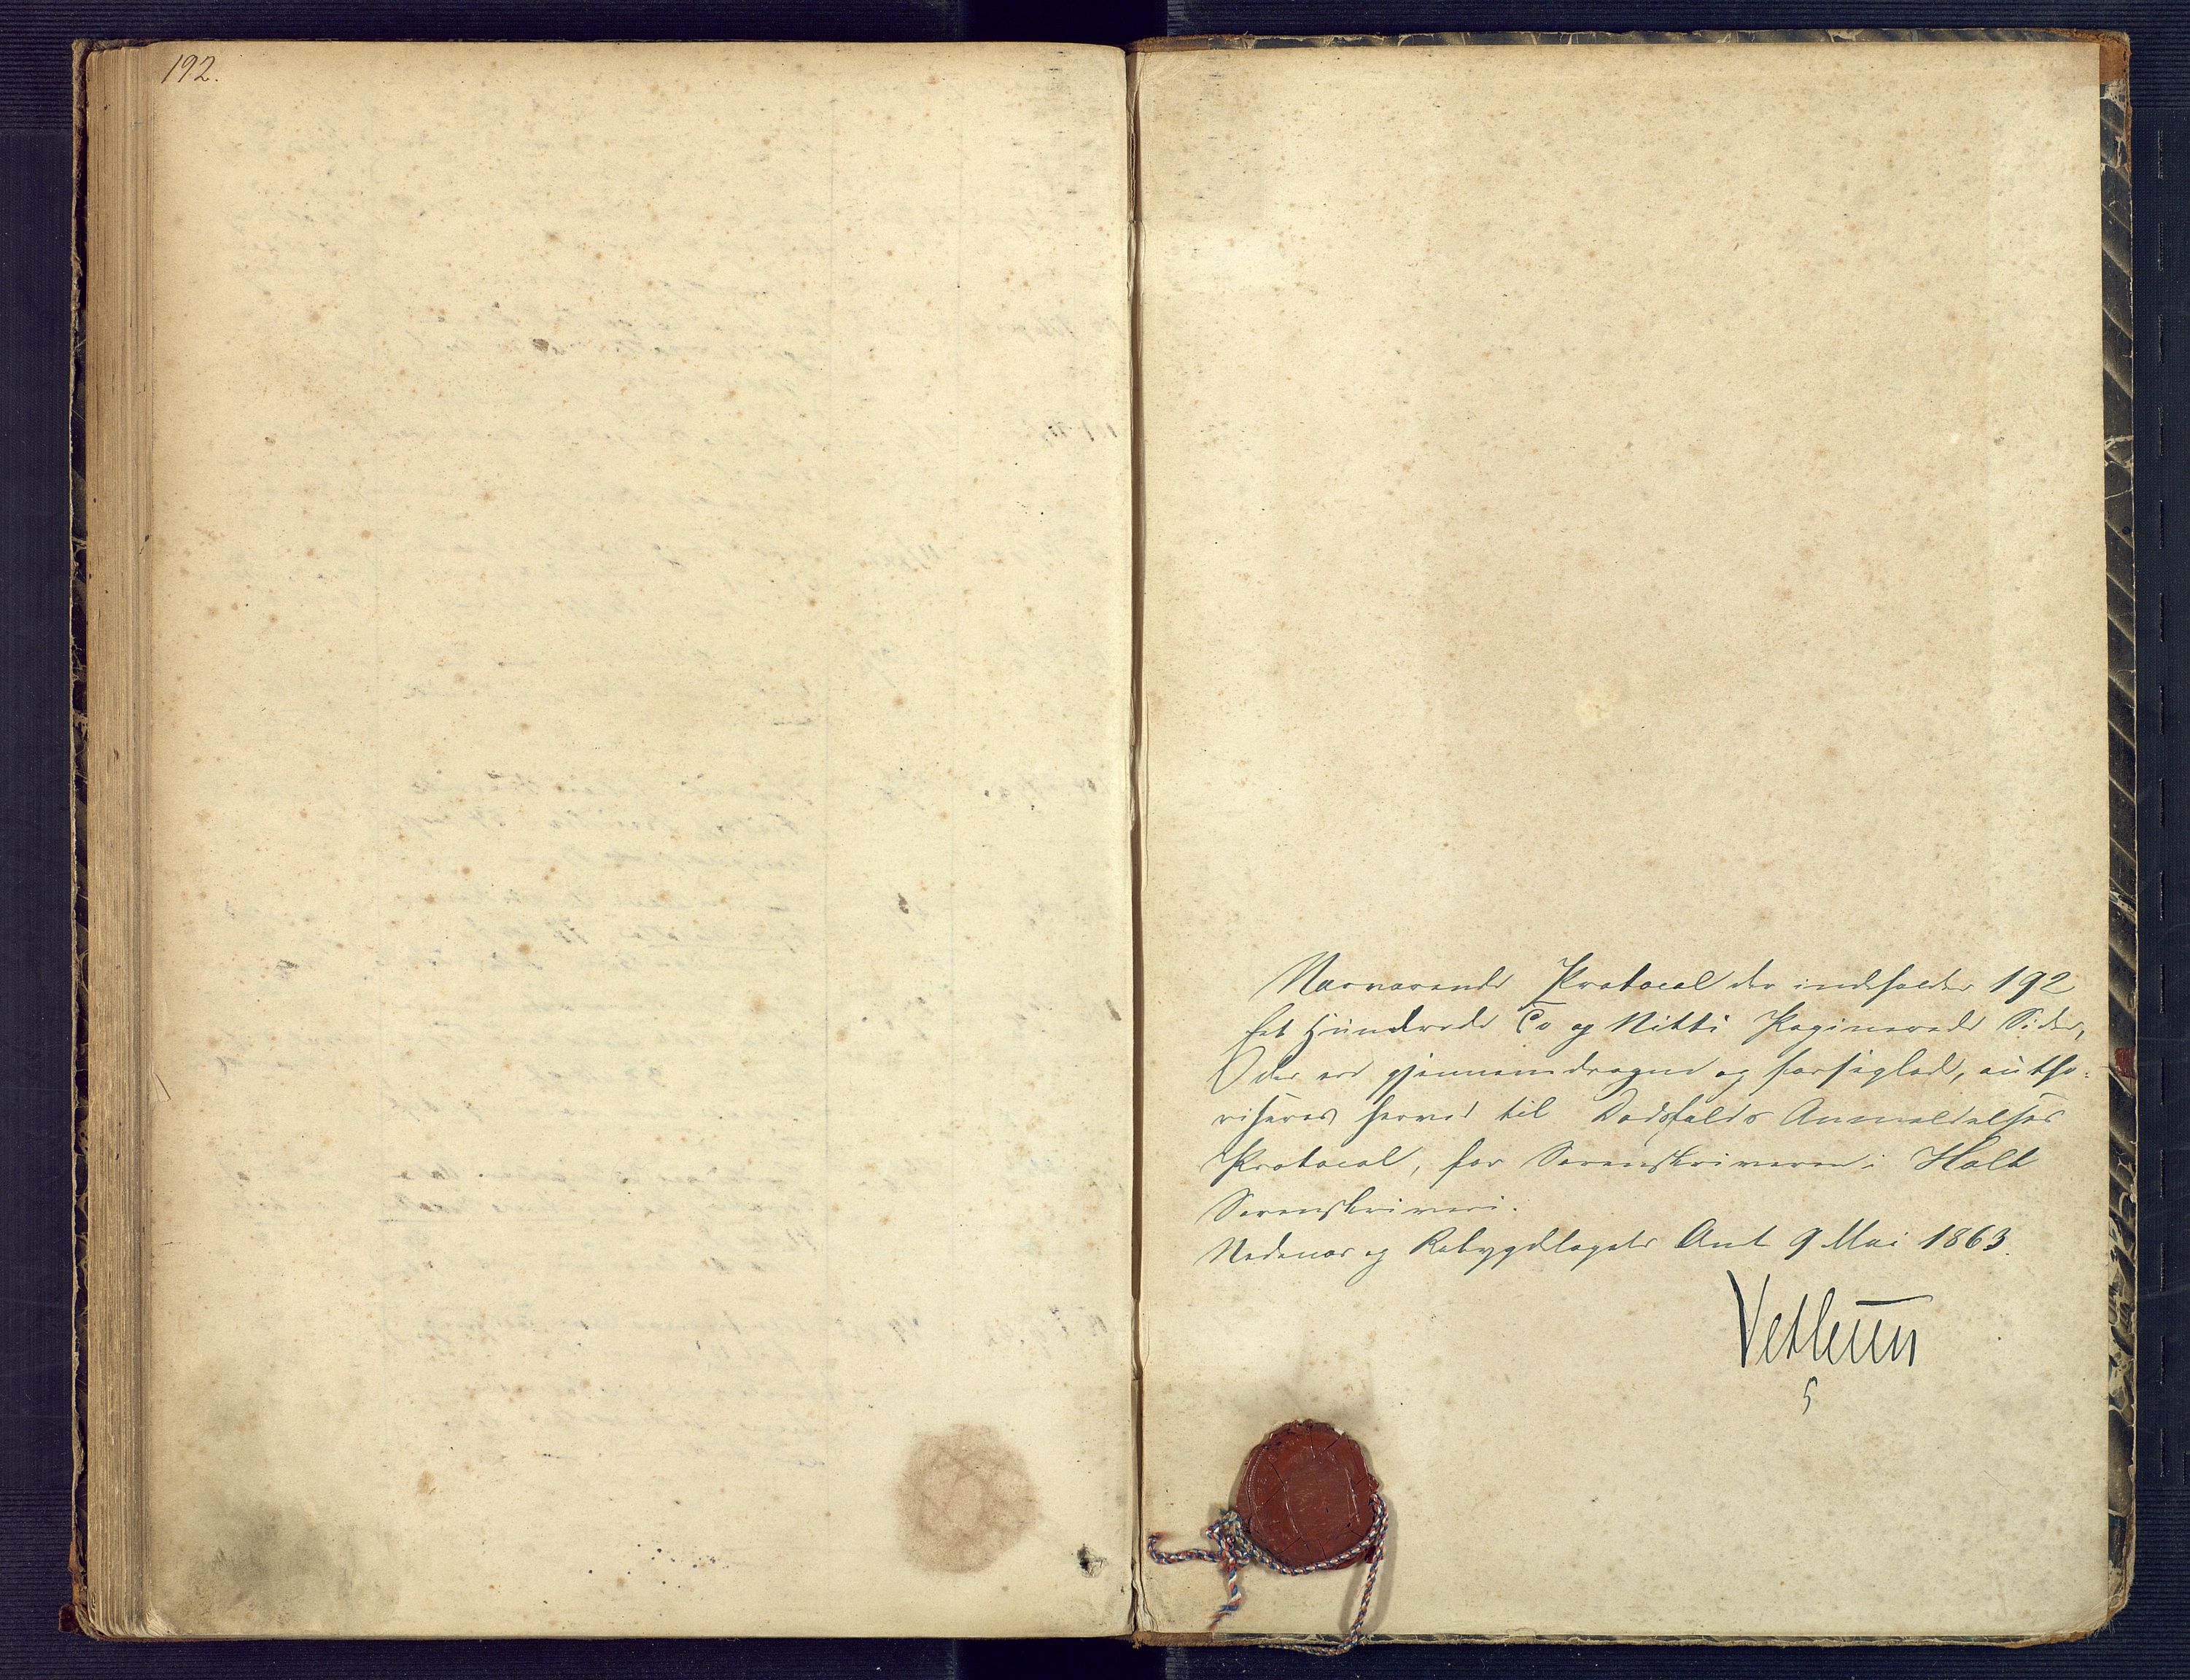 192.
Nærværende Protocol der indholder 192
Et Hundrede To og Nitti Paginerede Sider,
der ere gjennemdragne og forseglede, autho-
riseres herved til Dødsfalds Anmeldelses
Protocol, for Sorenskriveren i Holt
Sorenskriveri.
Nedenæs og Robygdelagets Amt 9 Mai 1863.